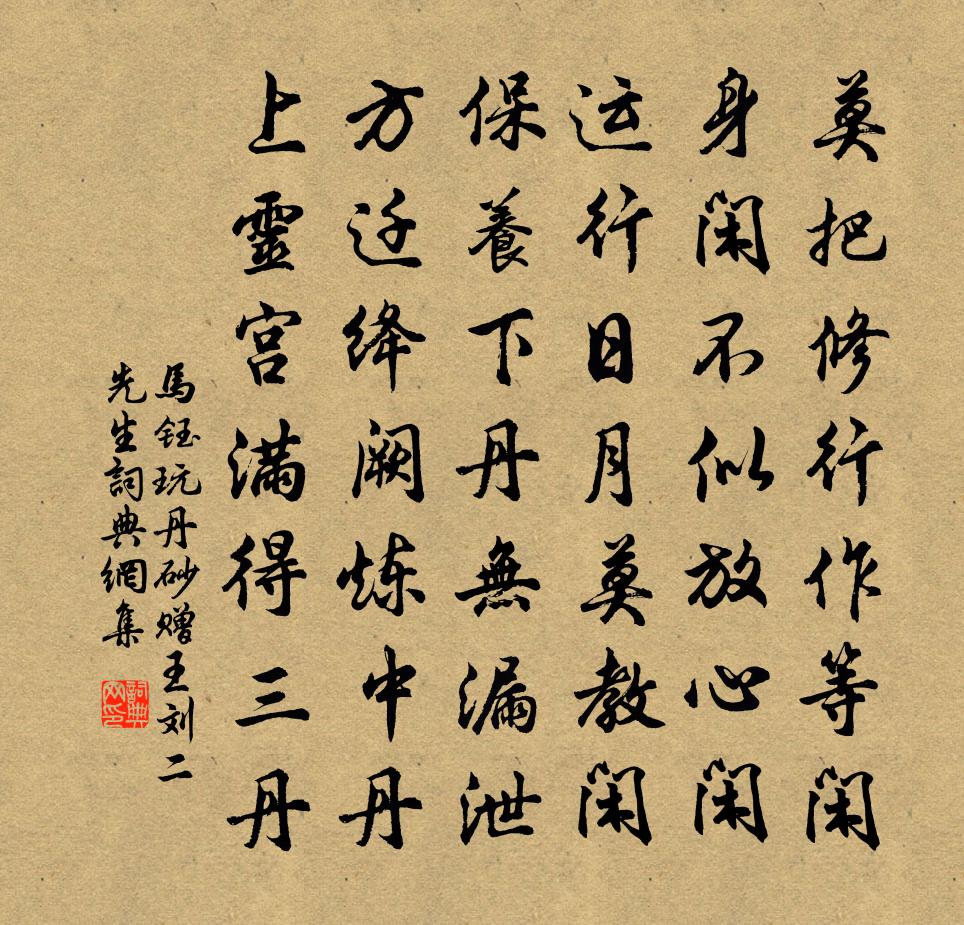 莫把修行作等闲
身闲不似放心闲
运行日月莫教闲
保养下丹無漏泄
方迁绛阙炼中丹
上靈宫满得三丹
馬钰玩丹砂赠王刘二
先生詞典網集
詞典网印